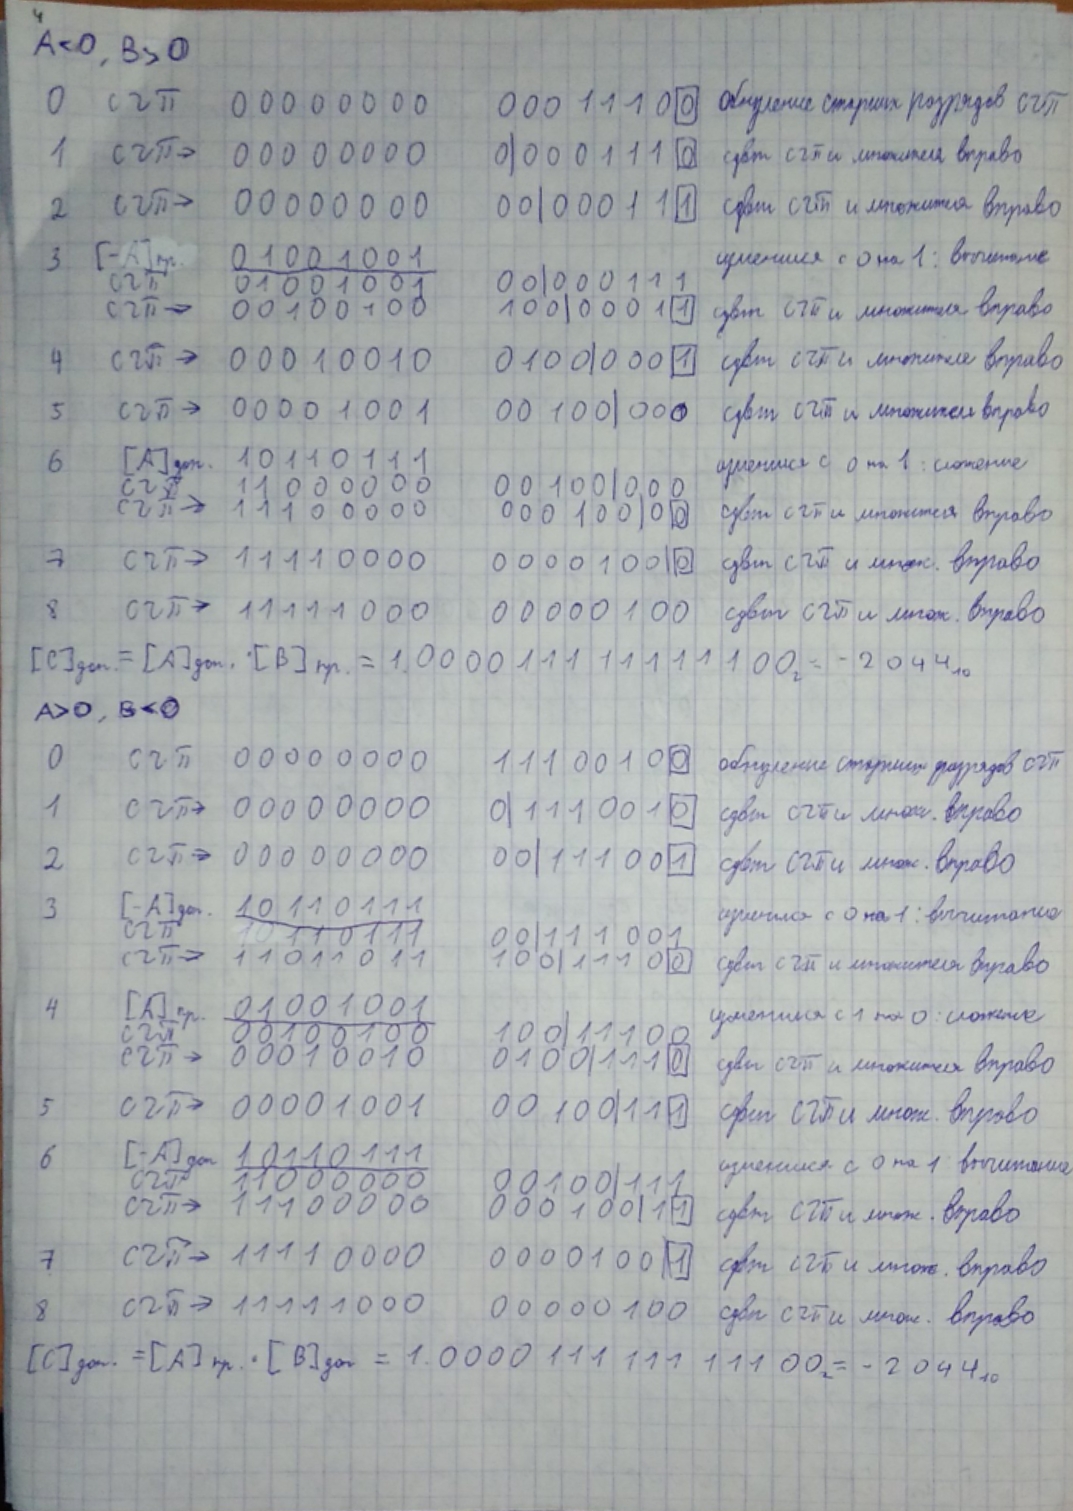 4
A<0, B>0
0 СЧП 00000000 00011100 обнуление старших разрядов СЧП
1 СЧП→ 00000000 0|0001110 сдвиг СЧП и множителя вправо
2 СЧП→ 00000000 00|000111 сдвиг СЧП и множителя вправо
3 [-A]пр. 01001001 изменился с 0 на 1: вычитание
СЧП 01001001 00|000111
СЧП→ 00100100 100|00011 сдвиг СЧП и множителя вправо
4 СЧП→ 00010010 0100|0001 сдвиг СЧП и множителя вправо
5 СЧП→ 00001001 00100|000 сдвиг СЧП и множителя вправо
6 [A]доп. 10110111 изменился с 0 на 1: сложение
СЧП 11000000 00100|000
СЧП→ 11100000 000100|00 сдвиг СЧП и множителя вправо
7 СЧП→ 11110000 0000100|0 сдвиг СЧП и множ. вправо
8 СЧП→ 11111000 00000100 сдвиг СЧП и множ. вправо
[C]доп. = [A]доп. · [B]пр. = 1.0000111111111100₂ = -2044₁₀
A>0, B<0
0 СЧП 00000000 11100100 обнуление старших разрядов СЧП
1 СЧП→ 00000000 0|1110010 сдвиг СЧП и множ. вправо
2 СЧП→ 00000000 00|111001 сдвиг СЧП и множ. вправо
3 [-A]доп. 10110111 изменился с 0 на 1: вычитание
СЧП 10110111 00|111001
СЧП→ 11011011 100|11100 сдвиг СЧП и множителя вправо
4 [A]пр. 01001001 изменился с 1 на 0: сложение
СЧП 00100100 100|11100
СЧП→ 00010010 0100|1110 сдвиг СЧП и множителя вправо
5 СЧП→ 00001001 00100|111 сдвиг СЧП и множ. вправо
6 [-A]доп 10110111 изменился с 0 на 1 вычитание
СЧП 11000000 00100|111
СЧП→ 11100000 000100|11 сдвиг СЧП и множ. вправо
7 СЧП→ 11110000 0000100|1 сдвиг СЧП и множ. вправо
8 СЧП→ 11111000 00000100 сдвиг СЧП и множ. вправо
[C]доп. = [A]пр. · [B]доп = 1.0000111111111100₂ = -2044₁₀